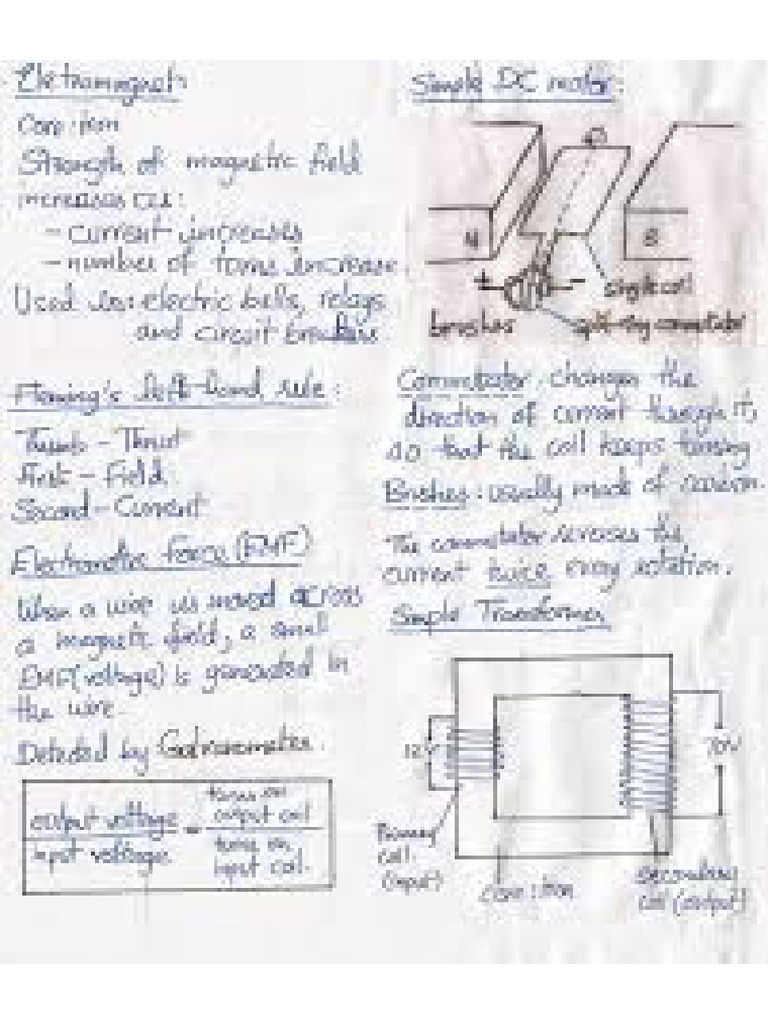 Electromagnet:
Core: iron
Strength of magnetic field
increases as:
- current increases
- number of turns increase.
Used in: electric bells, relays
and circuit breakers
Fleming's left-hand rule:
Thumb - Thrust
First - Field
Second - Current
Electromotive force (EMF)
When a wire is moved across
a magnetic field, a small
EMF (voltage) is generated in
the wire
Detected by Galvanometer.
output voltage = turns on output coil
input voltage turns on input coil.
Simple DC motor:
N
S
+ -
single coil
brushes split-ring commutator
Commutator: changes the
direction of current through it,
so that the coil keeps turning
Brushes: usually made of carbon.
The commutator reverses the
current twice every rotation.
Simple Transformer
12V
Primary
coil
(input)
core: iron
secondary
coil (output)